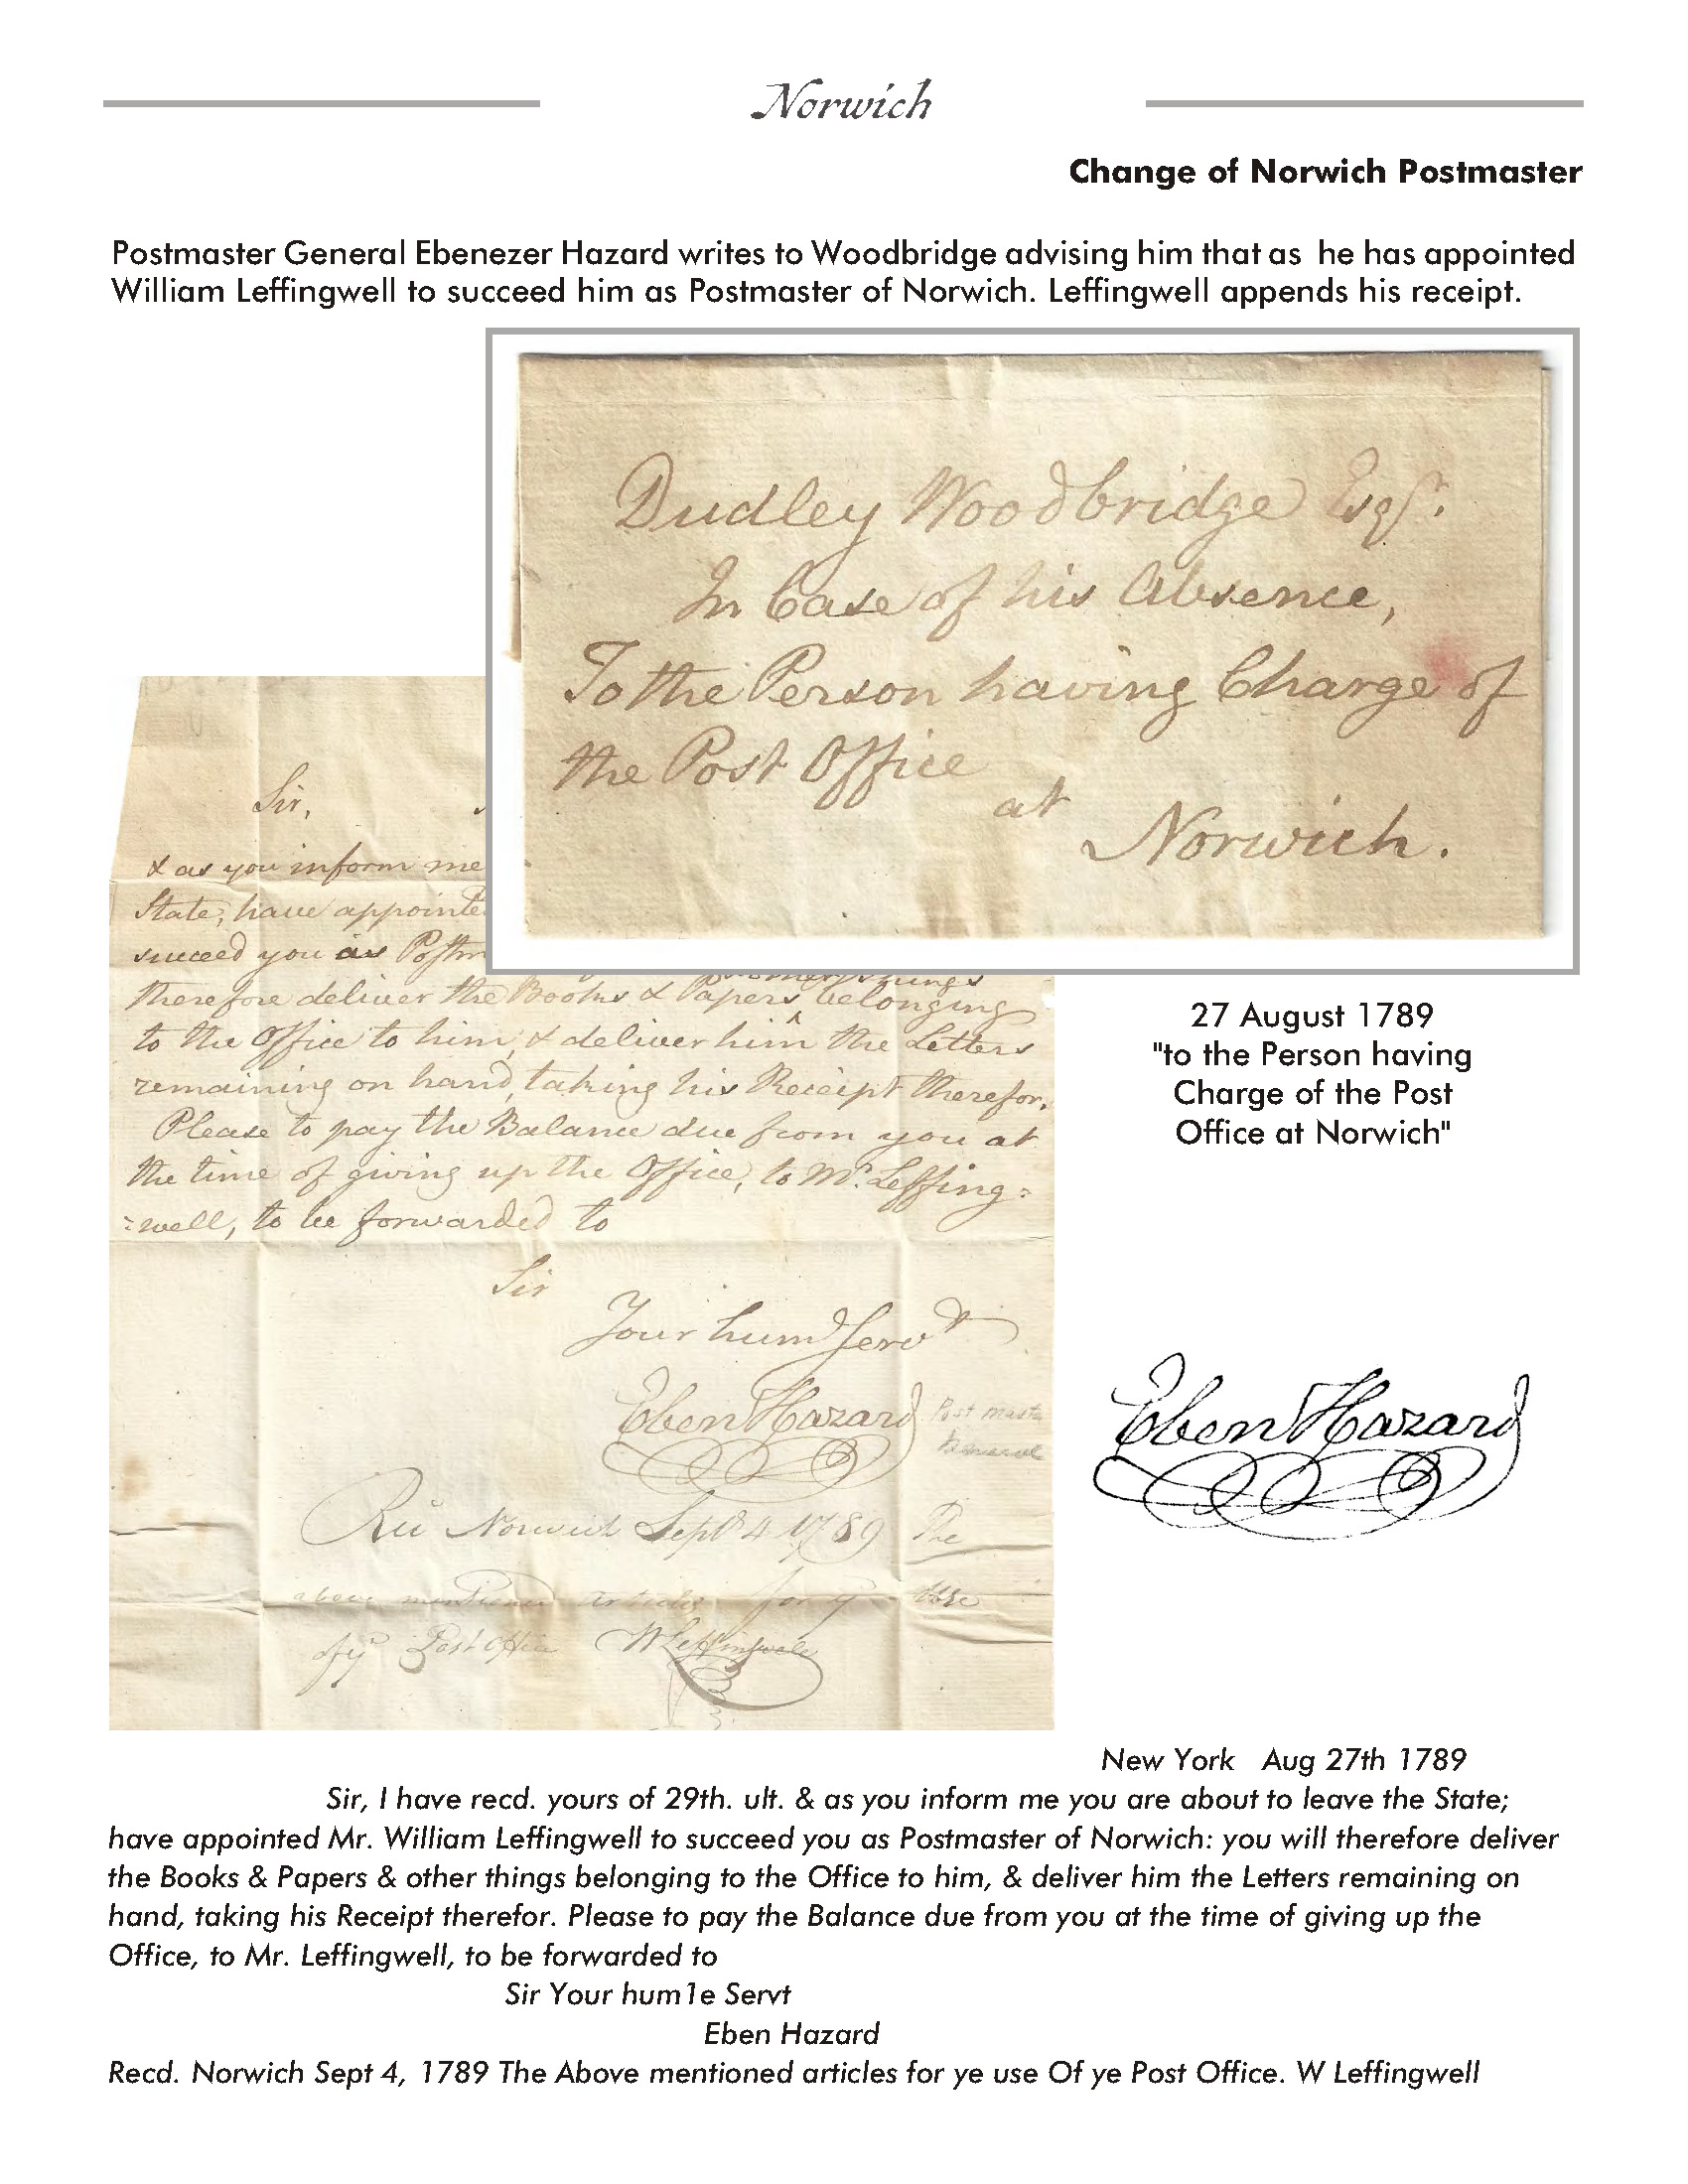 Norwich
Change of Norwich Postmaster
Postmaster General Ebenezer Hazard writes to Woodbridge advising him that as he has appointed
William Leffingwell to succeed him as Postmaster of Norwich. Leffingwell appends his receipt.
Dudley Woodbridge Esqr.
In Case of his Absence,
To the Person having Charge of
the Post Office
at
Norwich.
Sir,
& as you inform me
State, have appointe
succeed you as Postm
other things
therefore deliver the Books & Papers ^ belonging
to the Office to him, & deliver him the Letters
remaining on hand, taking his Receipt therefor.
Please to pay the Balance due from you at
the time of giving up the Office, to Mr. Leffing=
=well, to be forwarded to
Sir
Your hum Servt
Eben Hazard
Post master
General
Rec Norwich Sept 4 1789 The
above mentioned articles for ye Use
of ye Post Office W Leffingwell
27 August 1789
"to the Person having
Charge of the Post
Office at Norwich"
Eben Hazard
New York Aug 27th 1789
Sir, I have recd. yours of 29th. ult. & as you inform me you are about to leave the State;
have appointed Mr. William Leffingwell to succeed you as Postmaster of Norwich: you will therefore deliver
the Books & Papers & other things belonging to the Office to him, & deliver him the Letters remaining on
hand, taking his Receipt therefor. Please to pay the Balance due from you at the time of giving up the
Office, to Mr. Leffingwell, to be forwarded to
Sir Your hum1e Servt
Eben Hazard
Recd. Norwich Sept 4, 1789 The Above mentioned articles for ye use Of ye Post Office. W Leffingwell